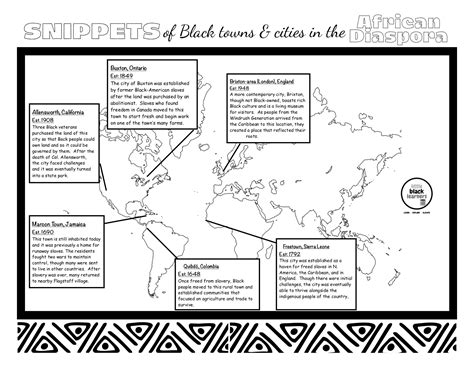 SNIPPETS of Black towns & cities in the African Diaspora
Buxton, Ontario
Est.1849
The city of Buxton was established by
former Black-American slaves
after the land was purchased by an
abolitionist. Slaves who found
freedom in Canada moved to this
town to start fresh and begin work
on one of the town's many farms.
Brixton-area (London), England
Est 1948
A more contemporary city, Brixton,
though not Black-owned, boasts rich
Black culture and is a living museum
of resistance. As people from the
Windrush Generation arrived from
the Caribbean to this location, they
created a place that reflected their
roots.
Allensworth, California
Est.1908
Three Black veterans
purchased the land of this
city so that Black people could
own land and so it could be
governed by them. After the
death of Col. Allensworth,
the city faced challenges
and it was eventually turned
into a state park.
little
black
learners
Maroon Town, Jamaica
Est.1690
This town is still inhabited today
and it was previously a home for
runaway slaves. The residents
fought two wars to maintain
control, though many were sent
to live in other countries. After
slavery was over, many returned
to nearby Flagstaff village.
Quibdó, Colombia
Est.1648
Once freed from slavery, Black
people moved to this rural town and
established communities that
focused on agriculture and trade to
survive.
Freetown, Sierra Leone
Est.1792
This city was established as a
haven for freed slaves in N
America, the Caribbean, and in
England. Though there were initial
challenges, the city was eventually
able to thrive alongside the
indigenous people of the country.